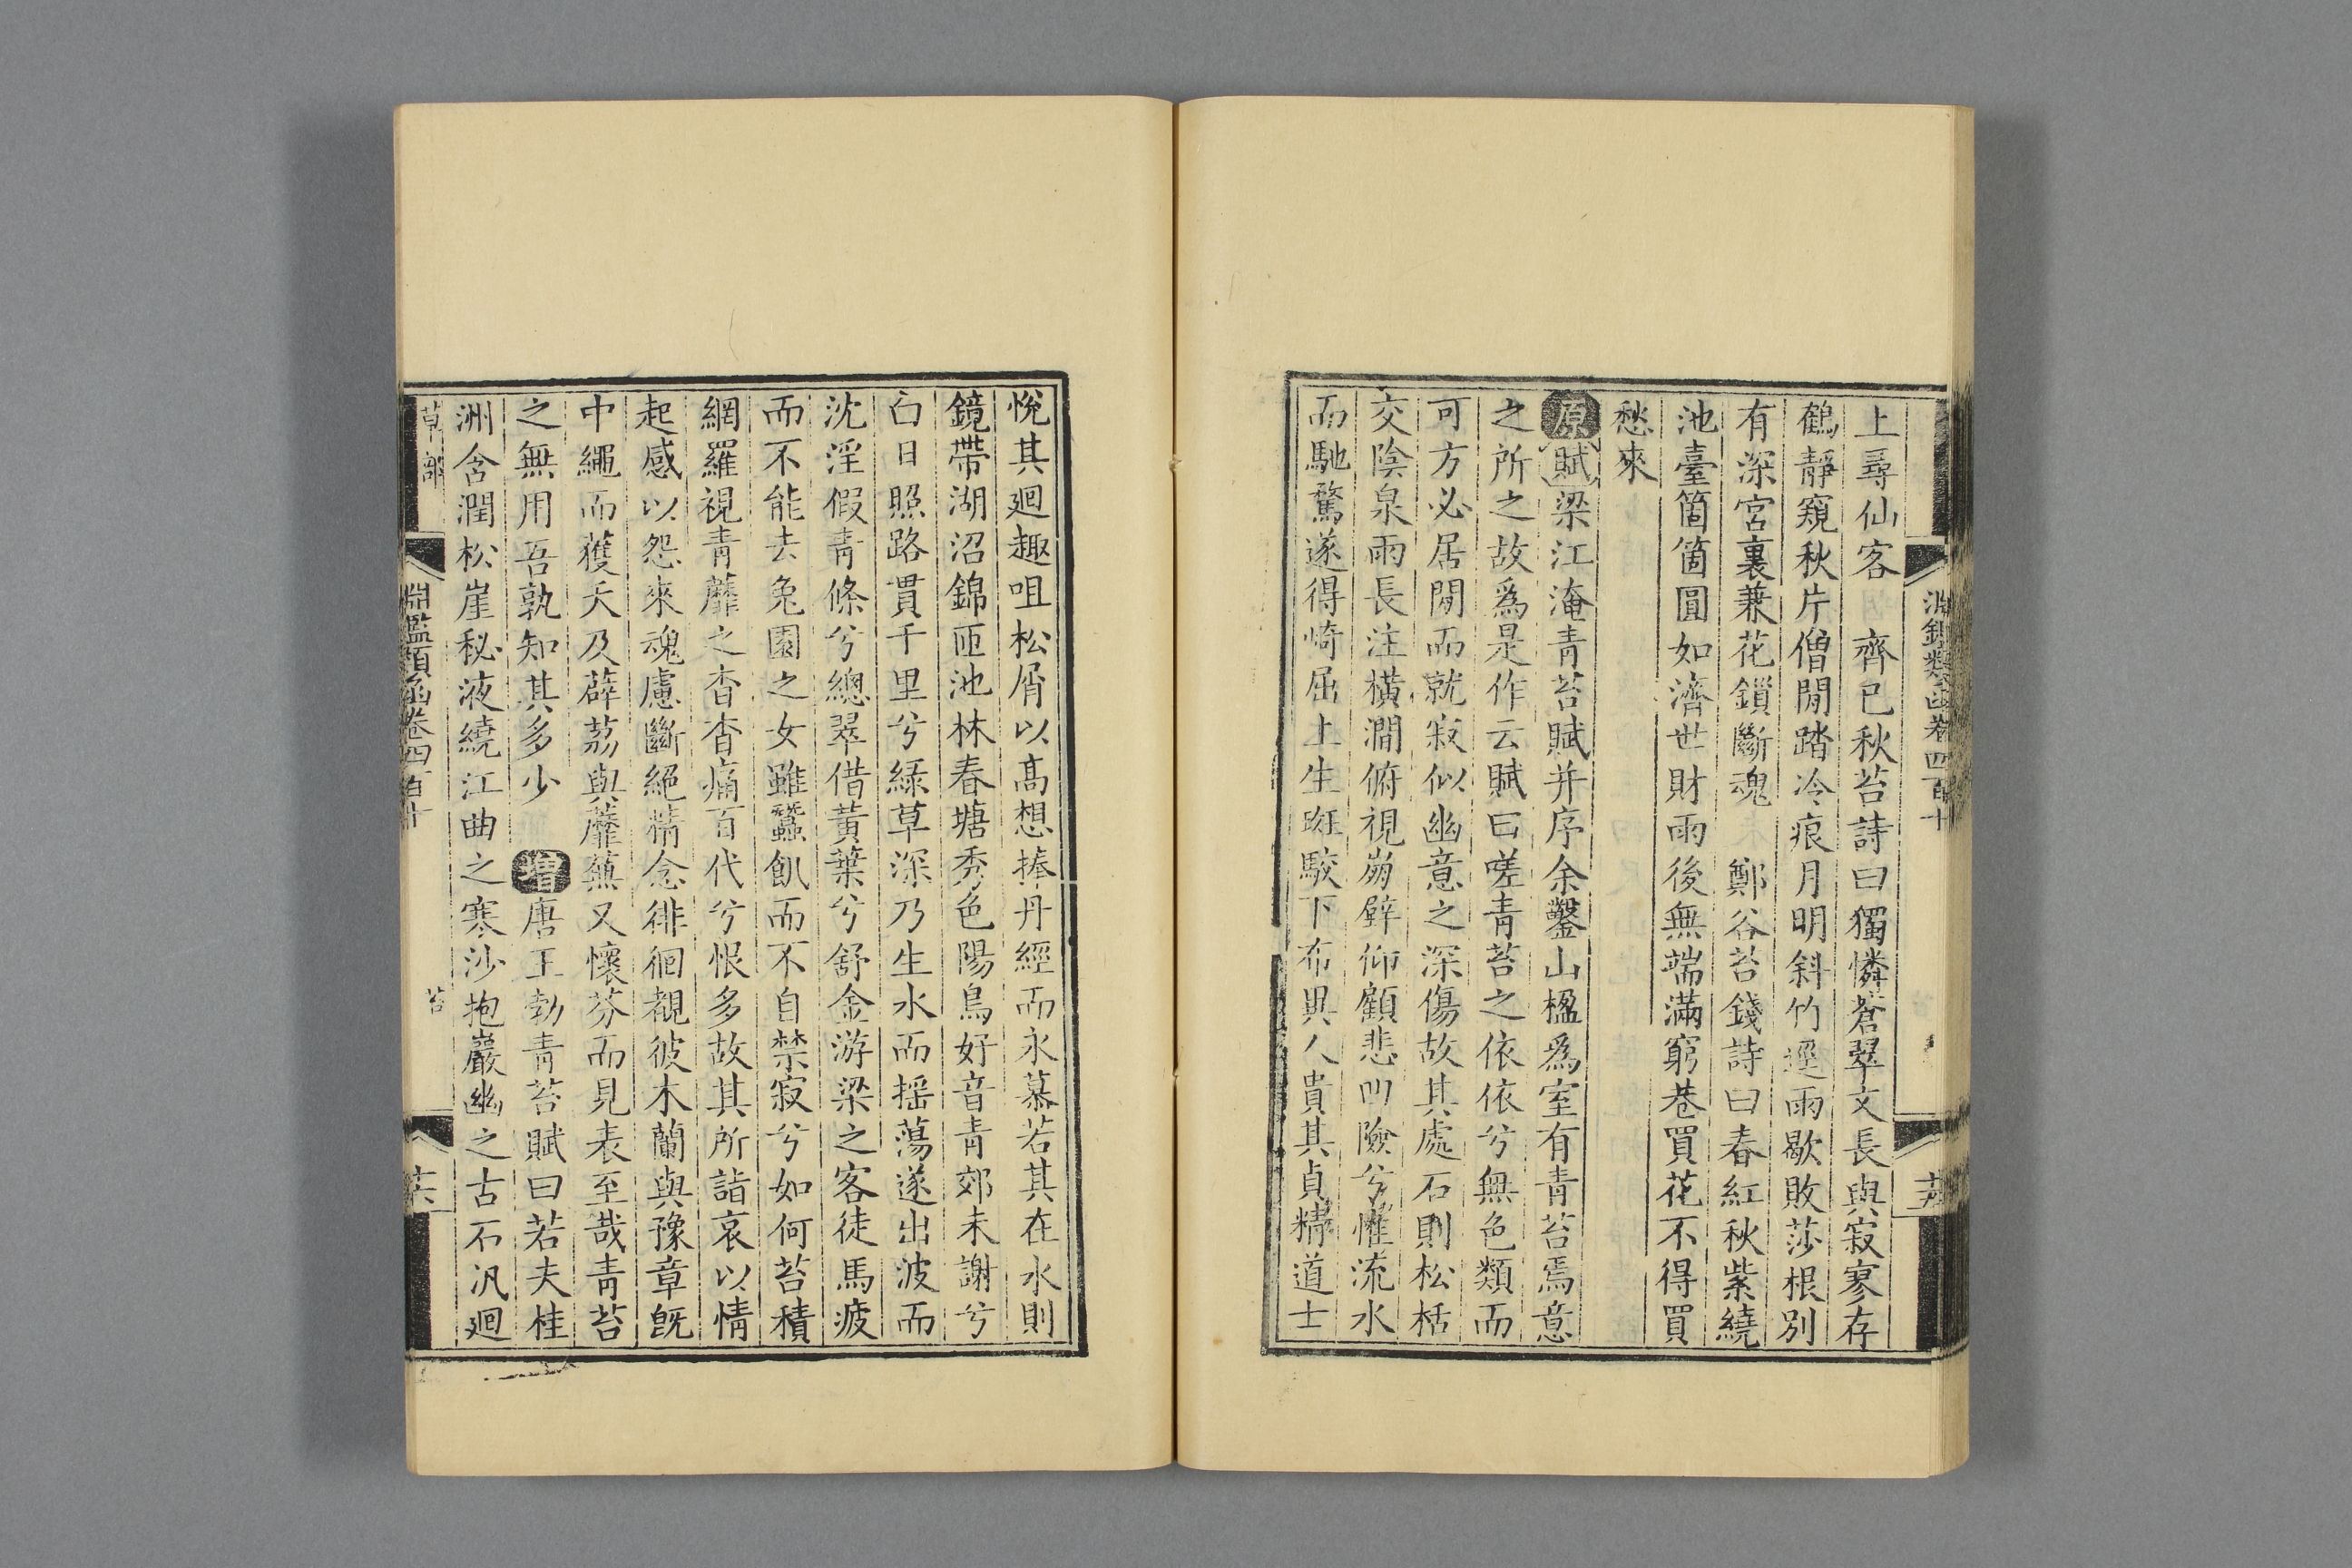 淵鑑類函卷四百十
十五
上尋仙客　齊已秋苔詩曰獨憐蒼翠文長與寂寥存
鶴靜窺秋片僧閒踏冷痕月明斜竹逕雨歇敗莎根別
有深宮裏兼花鎖斷魂　鄭谷苔錢詩曰春紅秋紫繞
池臺箇箇圓如濟世財雨後無端滿窮巷買花不得買
愁來
原賦梁江淹青苔賦并序余鑿山楹爲室有青苔焉意
之所之故爲是作云賦曰嗟青苔之依依兮無色類而
可方必居閒而就寂似幽意之深傷故其處石則松栝
交陰泉雨長注橫澗俯視崩壁仰顧悲凹險兮惟流水
而馳騖遂得崎屈上生斑駮下布異人貴其貞精道士
悅其迴趣咀松屑以高想捧丹經而永慕若其在水則
鏡帶湖沼錦匝池林春塘秀色陽鳥好音青郊未謝兮
白日照路貫千里兮綠草深乃生水而搖蕩遂出波而
沈淫假青條兮總翠借黃葉兮舒金游梁之客徒馬疲
而不能去兔園之女雖蠶飢而不自禁寂兮如何苔積
網羅視青蘼之杳杳痛百代兮恨多故其所詣哀以情
起感以怨來魂慮斷絕精念徘徊覩彼木蘭與豫章旣
中繩而獲夭及薜荔與蘼蕪又懷芬而見表至哉青苔
之無用吾孰知其多少　增唐王勃青苔賦曰若夫桂
洲含潤松崖秘液繞江曲之寒沙抱巖幽之古石汎迴
草部
苔
淵鑑類函卷四百十
十六